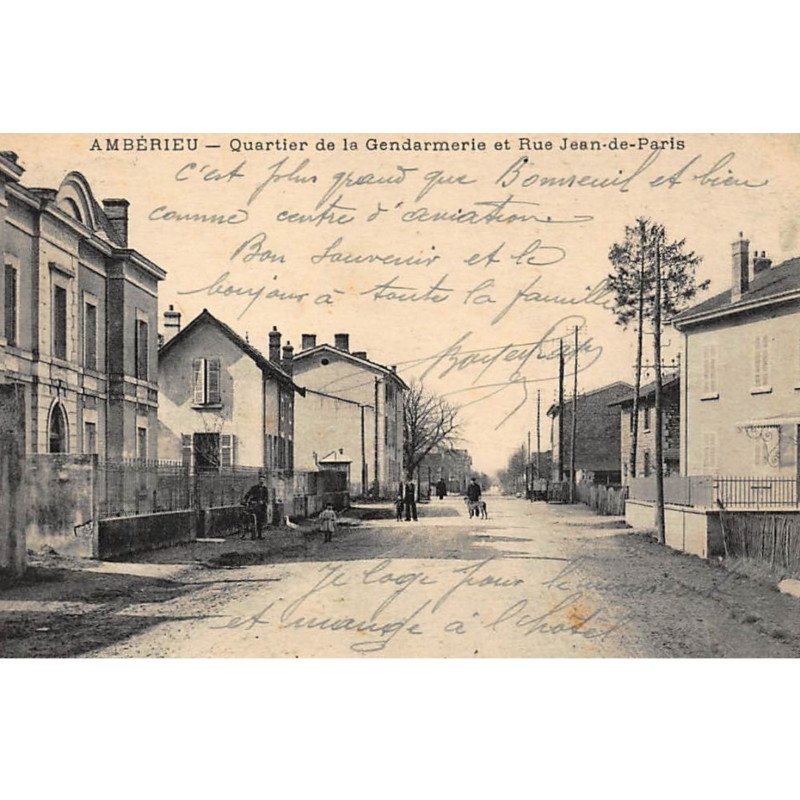 AMBÉRIEU — Quartier de la Gendarmerie et Rue Jean-de-Paris
c'est plus grand que Bonneuil et bien
comme centre d'aviation
Bon souvenir et le
bonjour à toute la famille
Je loge pour le moment
et mange à l'hotel